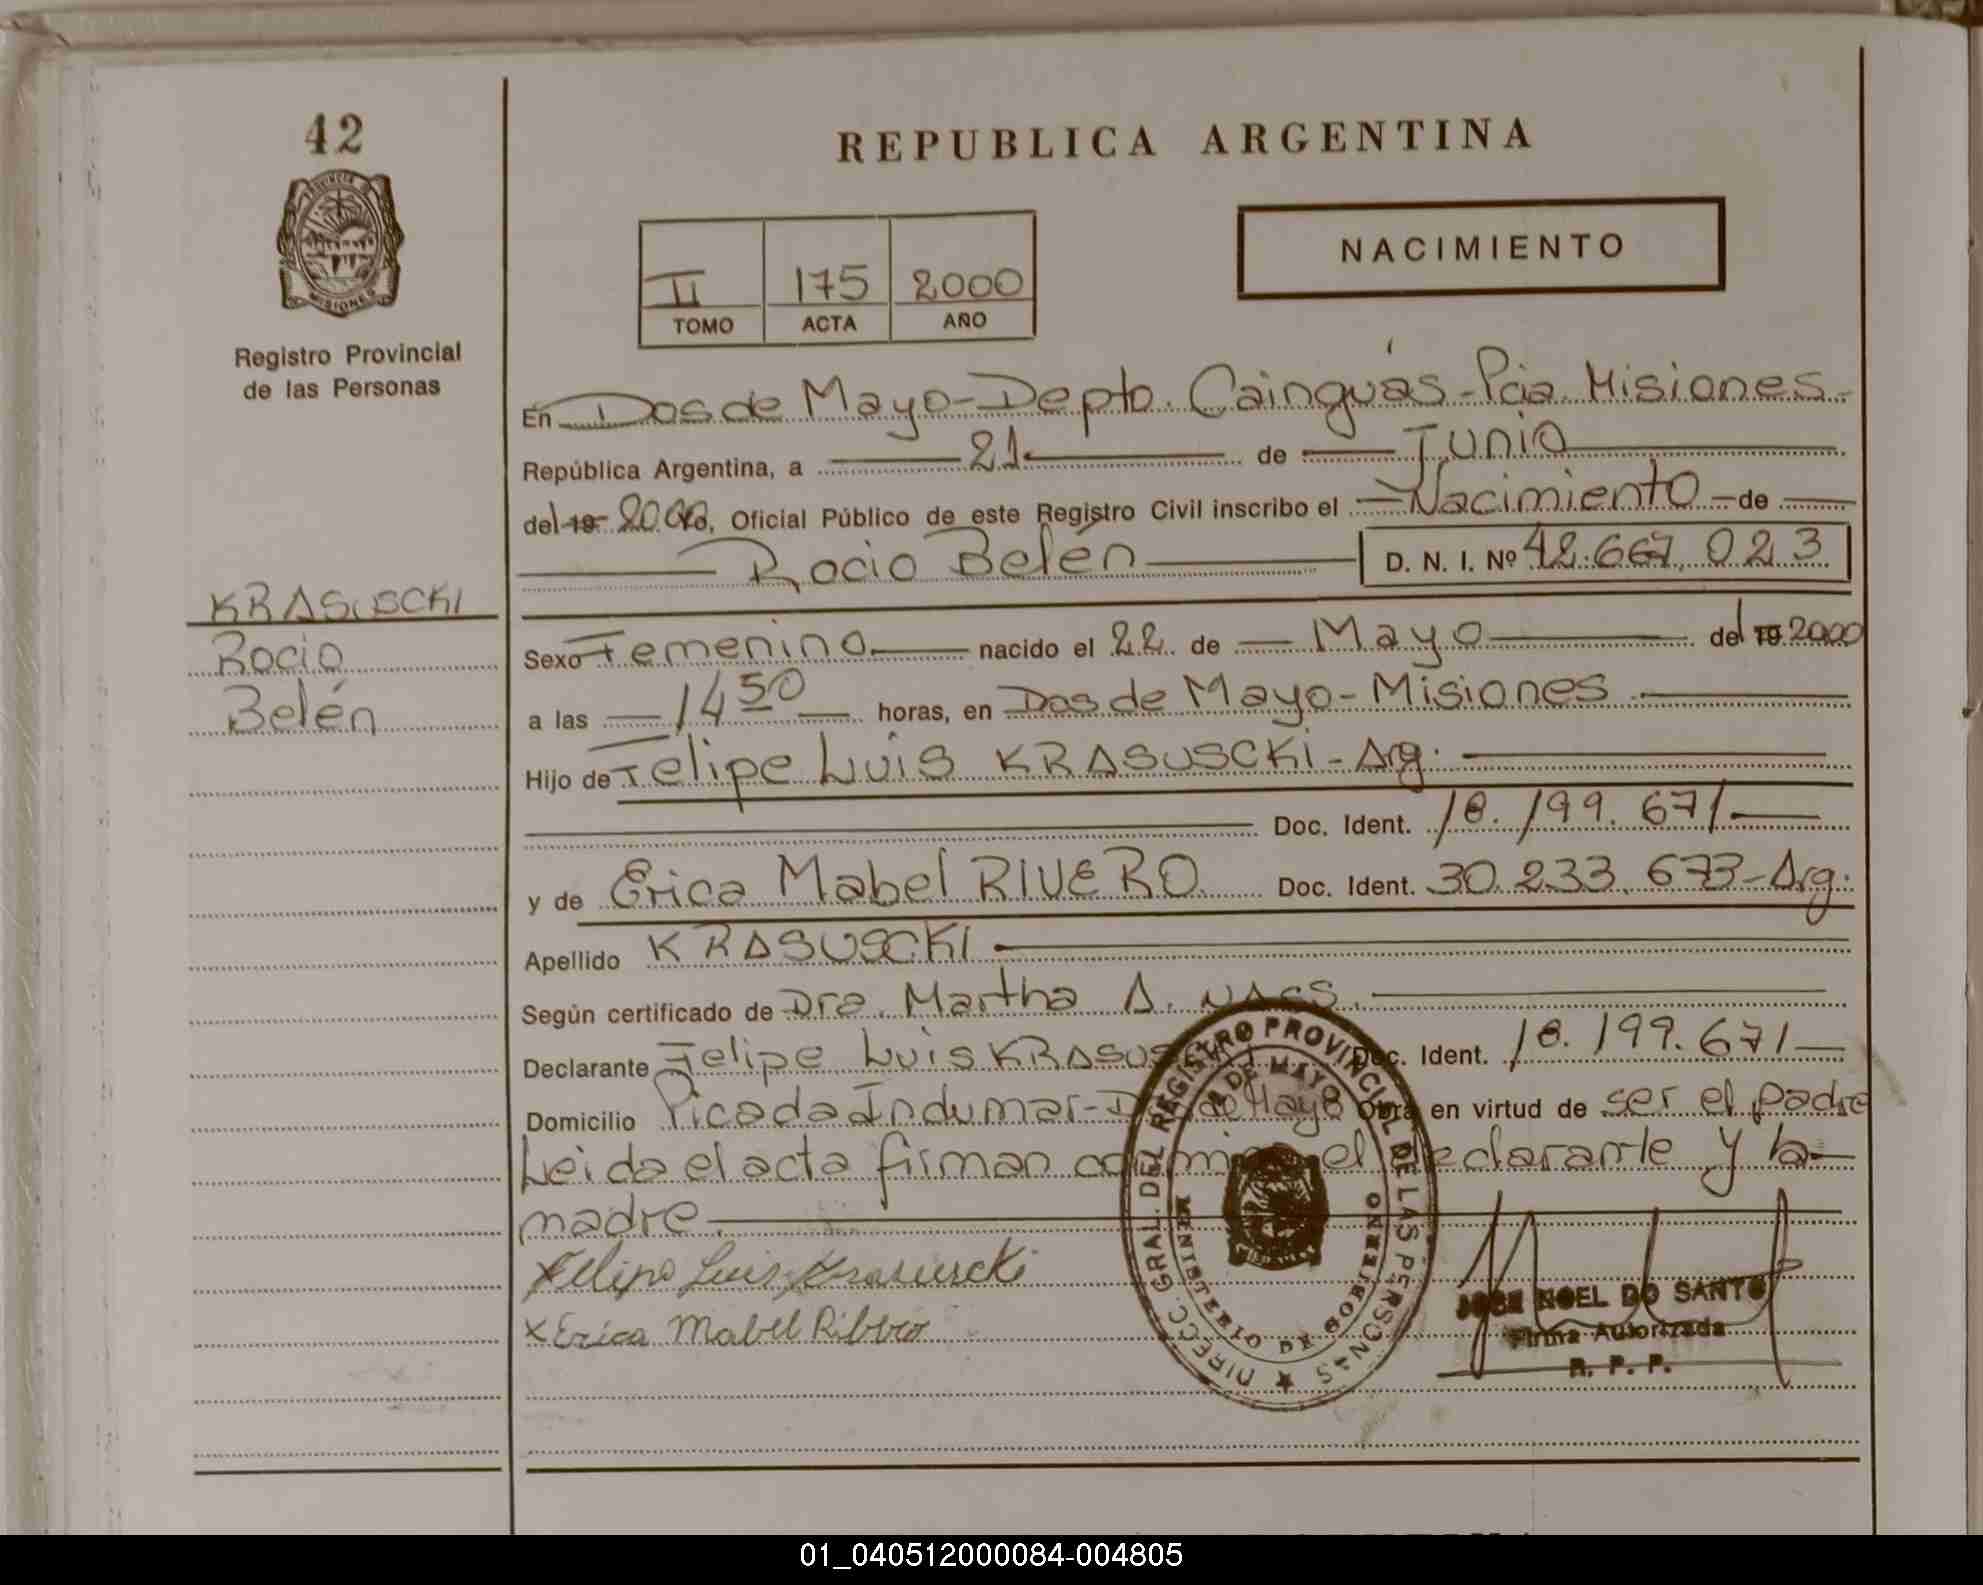 42
REPUBLICA ARGENTINA
PROVINCIA DE
MISIONES
NACIMIENTO
II 175 2000
TOMO ACTA AÑO
Registro Provincial
de las Personas
En Dos de Mayo - Depto. Cainguás - Pcia. Misiones -
República Argentina, a 21 de Junio
del 19 2000 Yo, Oficial Público de este Registro Civil inscribo el Nacimiento de
Rocio Belén D. N. I. Nº 42.667.023
KRASUSCKI
Rocio
Belén
Sexo Femenino nacido el 22 de Mayo del 19 2000
a las 14 50 horas, en Dos de Mayo - Misiones
Hijo de Felipe Luis KRASUSCKI - Arg.
Doc. Ident. 18.199.671
y de Erica Mabel RIVERO Doc. Ident. 30.233.673 - Arg.
Apellido KRASUSCKI
Según certificado de Dra. Martha A.
Declarante Felipe Luis Doc. Ident. 18.199.671
Domicilio Picada Indumar - de Mayo Obra en virtud de ser el padre
Leida el acta firman el declarante y la
madre.
Felipe Luis Krasuscki
x Erica Mabel Ribero
DIRECC. GRAL. DEL REGISTRO PROVINCIAL DE LAS PERSONAS
DE MAYO
MINISTERIO DE GOBIERNO
JOSE NOEL DO SANTO
Firma Autorizada
R. P. P.
01_040512000084-004805